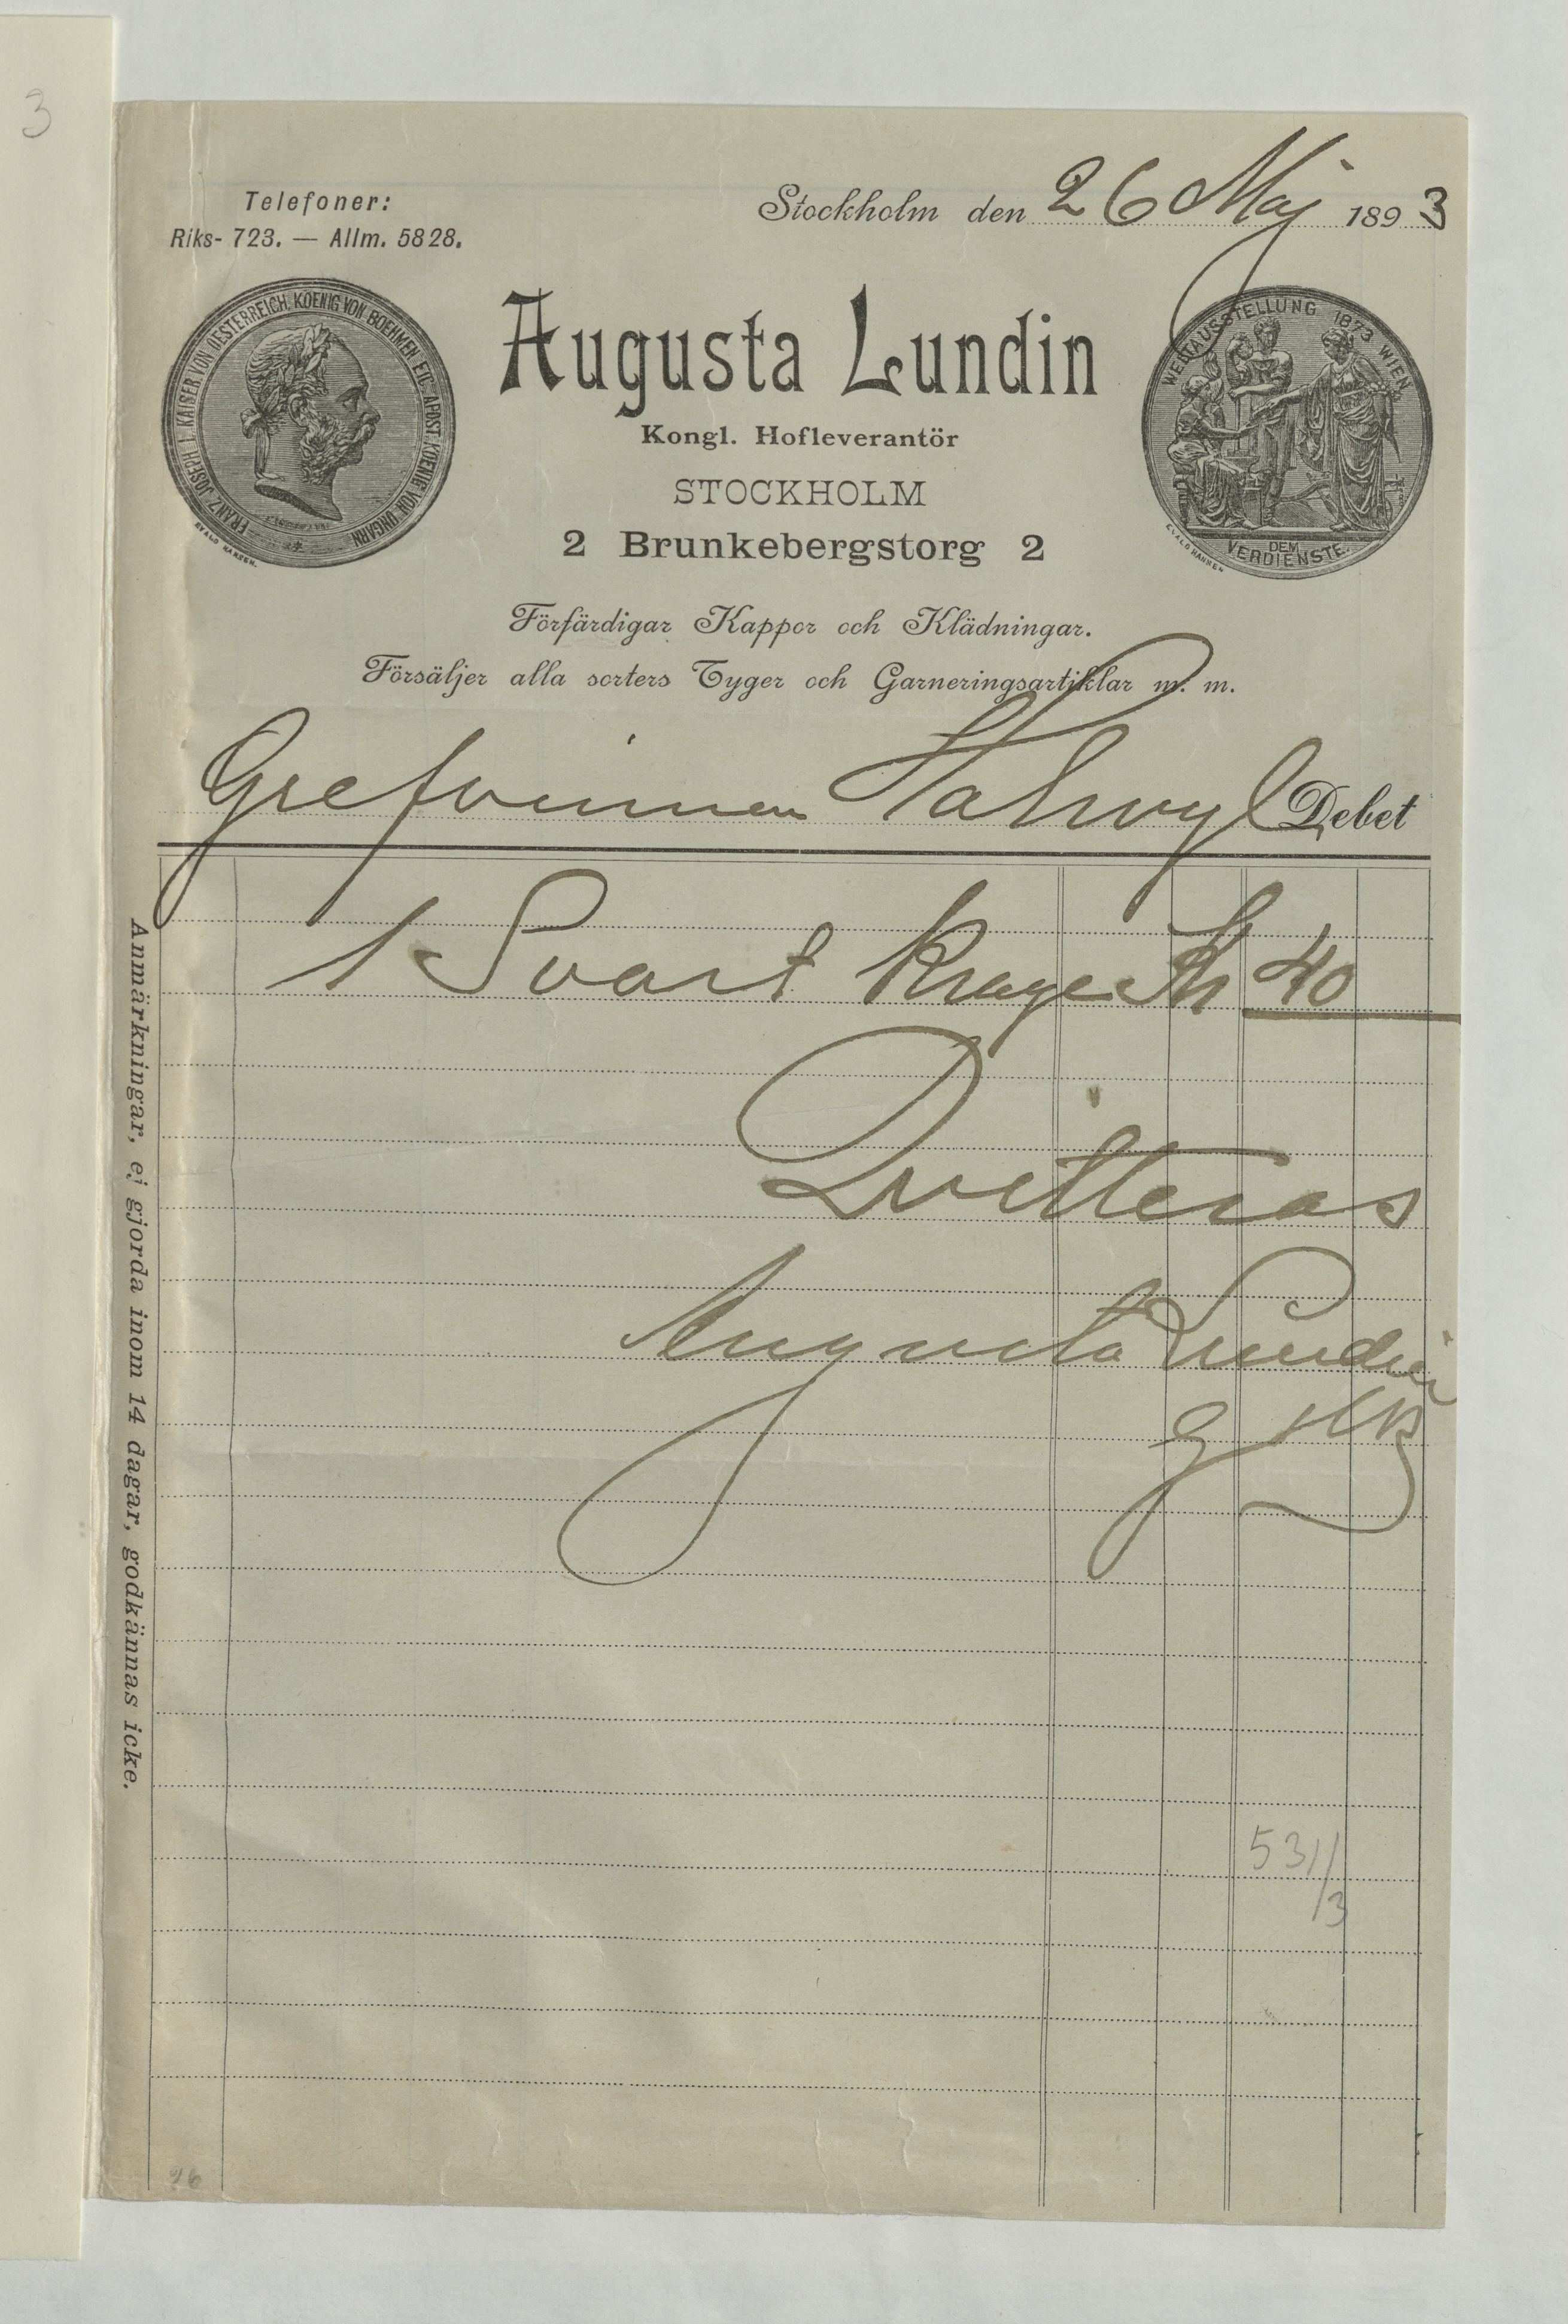 3
Telefoner:
Riks- 723. — Allm. 5828.
Stockholm den 26 Maj 1893
FRANZ JOSEPH I. KAISER VON OESTERREICH, KOENIG VON BOEHMEN ETC. APOST. KOENIG VON UNGARN
EVALD HANSEN.
Augusta Lundin
Kongl. Hofleverantör
STOCKHOLM
2 Brunkebergstorg 2
WELTAUSSTELLUNG 1873 WIEN
DEM
VERDIENSTE.
EVALD HANSEN
Förfärdigar Kappor och Klädningar.
Försäljer alla sorters Tyger och Garneringsartiklar m. m.
Grefvinnan Halwyl Debet
1 Svart Krage Kr 40
Qvitteras
Augusta Lundin
g
Anmärkningar, ej gjorda inom 14 dagar, godkännas icke.
531/3
26